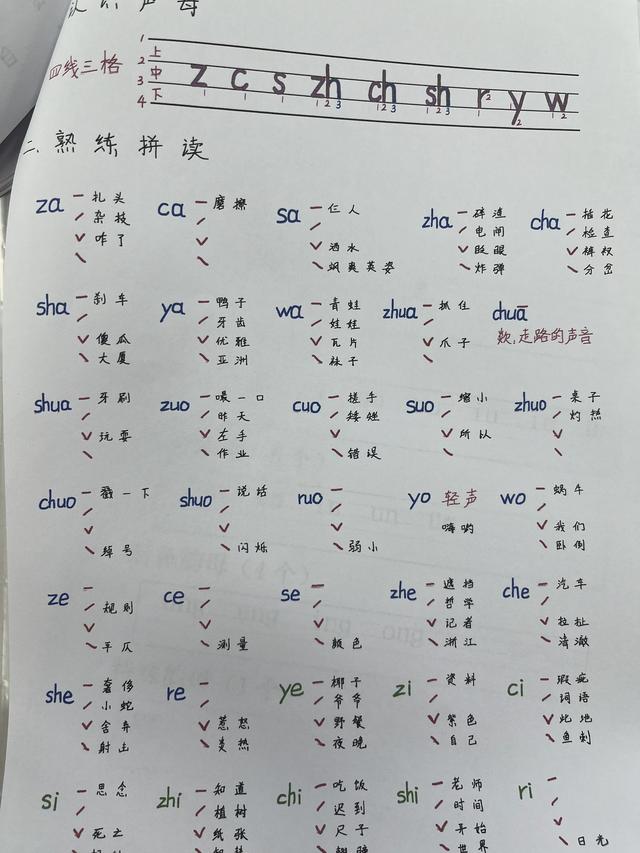 认识声母
四线三格
1 上
2 中
3 下
4
z c s zh ch sh r y w
二、熟练拼读
za ca sa zha cha
ˉ 扎头 ˉ 磨擦 ˉ 仨人 ˉ 碎渣 ˉ 插花
ˊ 杂技 ˊ ˊ ˊ 电闸 ˊ 检查
ˇ 咋了 ˇ ˇ 洒水 ˇ 眨眼 ˇ 裤衩
ˋ ˋ ˋ 飒爽英姿 ˋ 炸弹 ˋ 分岔
sha ya wa zhua chuā
ˉ 刹车 ˉ 鸭子 ˉ 青蛙 ˉ 抓住 欻,走路的声音
ˊ ˊ 牙齿 ˊ 娃娃 ˊ
ˇ 傻瓜 ˇ 优雅 ˇ 瓦片 ˇ 爪子
ˋ 大厦 ˋ 亚洲 ˋ 袜子 ˋ
shua zuo cuo suo zhuo
ˉ 牙刷 ˉ 嘬一口 ˉ 搓手 ˉ 缩小 ˉ 桌子
ˊ ˊ 昨天 ˊ 矮矬 ˊ ˊ 灼热
ˇ 玩耍 ˇ 左手 ˇ ˇ 所以 ˇ
ˋ ˋ 作业 ˋ 错误 ˋ ˋ
chuo shuo ruo yo 轻声 wo
ˉ 戳一下 ˉ 说话 ˉ 嗨哟 ˉ 蜗牛
ˊ ˊ ˊ ˊ
ˇ ˇ ˇ ˇ 我们
ˋ 绰号 ˋ 闪烁 ˋ 弱小 ˋ 卧倒
ze ce se zhe che
ˉ ˉ ˉ ˉ 遮挡 ˉ 汽车
ˊ 规则 ˊ ˊ ˊ 哲学 ˊ
ˇ ˇ ˇ ˇ 记者 ˇ 拉扯
ˋ 平仄 ˋ 测量 ˋ 颜色 ˋ 浙江 ˋ 清澈
she re ye zi ci
ˉ 奢侈 ˉ ˉ 椰子 ˉ 资料 ˉ 瑕疵
ˊ 小蛇 ˊ ˊ 爷爷 ˊ ˊ 词语
ˇ 舍弃 ˇ 惹怒 ˇ 野餐 ˇ 紫色 ˇ 此地
ˋ 射击 ˋ 炎热 ˋ 夜晚 ˋ 自己 ˋ 鱼刺
si zhi chi shi ri
ˉ 思念 ˉ 知道 ˉ 吃饭 ˉ 老师 ˉ
ˊ ˊ 植树 ˊ 迟到 ˊ 时间 ˊ
ˇ 死亡 ˇ 纸张 ˇ 尺子 ˇ 开始 ˇ
ˋ ˋ ˋ 翅膀 ˋ 世界 ˋ 日光